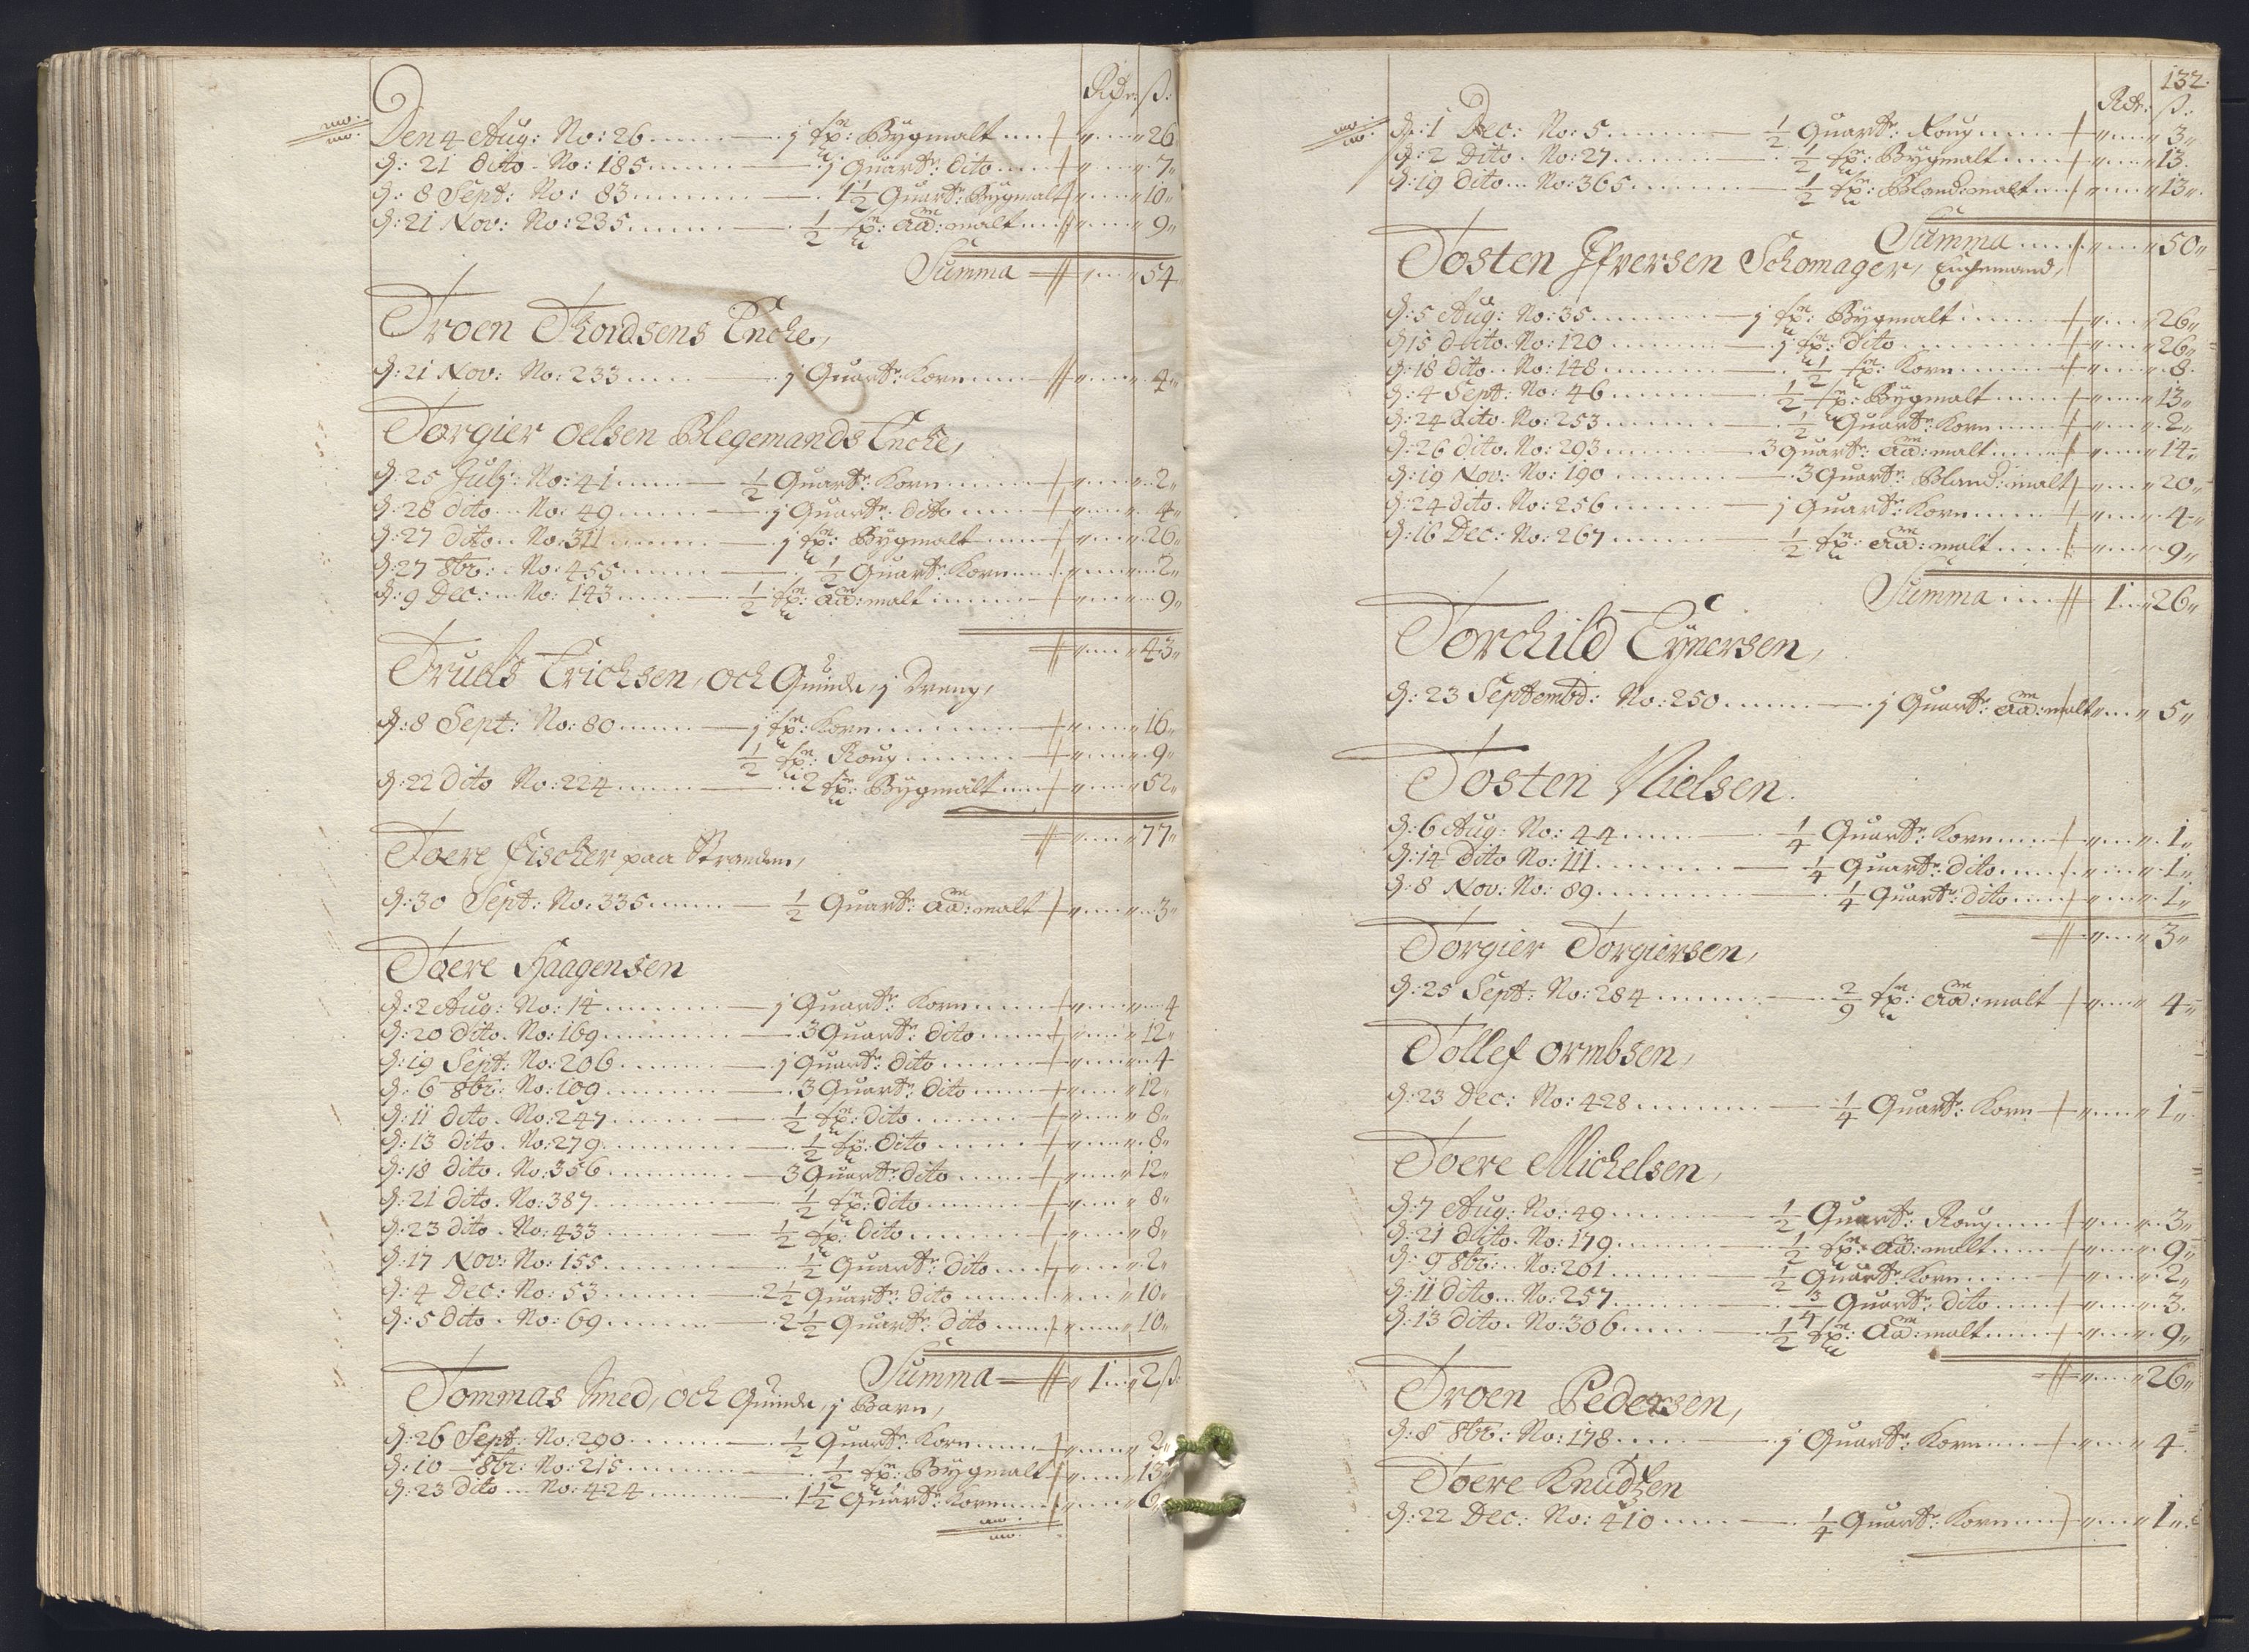 Rdr: ß:
Den 4 Aug: No: 26 ...... j sp: Bÿgmalt .... 26
d: 21 dito - No: 185 ...... j Quart: dito .... 7
d: 8 Sept: No: 83 ...... 1 1/2 Quart: Bÿgmalt .... 10
d: 21 Nov: No: 235 ...... 1/2 sp: aa: malt .... 9
Summa .... 54
Troen Thordsens Encke,
d: 21 Nov: No: 233 ...... j Quart: Korn .... 4
Torgier Oelsen Blegemands Encke,
d: 25 Julÿ: No: 41 ...... 1/2 Quart: Korn .... 2
d: 28 dito ... No: 49 ...... j Quart: dito .... 4
d: 27 dito .. No: 311 ...... j sp: Bÿgmalt .... 26
d: 27 8br: . No: 455 ...... 1/2 Quart: Korn .... 2
d: 9 Dec: ... No: 143 ...... 1/2 sp: aa: malt .... 9
43
Truels Erichsen, och Quinde, j Dreng,
d: 8 Sept: No: 80 ...... j sp: Korn .... 16
1/2 sp: Roug .... 9
d: 22 dito No: 224 ...... 2 sp: Bÿgmalt .... 52
77
Toere Fischer paa Stranden,
d: 30 Sept: No: 335 ...... 1/2 Quart: aa: malt .... 3
Toere Haagensen
d: 2 Aug: No: 14 ...... j Quart: Korn .... 4
d: 20 dito. No: 169 ...... 3 Quart: dito .... 12
d: 19 Sept: No: 206 ...... j Quart: dito .... 4
d: 6 8br: No: 109 ...... 3 Quart: dito .... 12
d: 11 dito. No: 247 ...... 1/2 sp: dito .... 8
d: 13 dito. No: 279 ...... 1/2 sp: dito .... 8
d: 18 dito. No: 356 ...... 3 Quart: dito .... 12
d: 21 dito. No: 387 ...... 1/2 sp: dito .... 8
d: 23 dito. No: 433 ...... 1/2 sp: dito .... 8
d: 17 Nov: No: 155 ...... 1/2 Quart: dito .... 2
d: 4 Dec: No: 53 ...... 2 1/2 Quart: dito .... 10
d: 5 dito. No: 69 ...... 2 1/2 Quart: dito .... 10
Summa .... 1 .. 2 ß
Tommas Smed, och Quinde, j Barn,
d: 26 Sept: No: 290 ...... 1/2 Quart: Korn .... 2
d: 10 - 8br: No: 215 ...... 1/2 sp: Bÿgmalt .... 13
d: 23 dito ... No: 424 ...... 1 1/2 Quart: Korn .... 6
132:
Rdr: ß:
d: 1 Dec: No: 5 ...... 1/2 Quart: Roug .... 3
d: 2 Dito. No: 27 ...... 1/2 sp: Bÿgmalt .... 13
d: 19 dito ... No: 365 ...... 1/2 sp: Bland: malt .... 13
Summa .... 50
Tosten Ifversen Schomager,
d: 5 Aug: No: 35 ...... j sp: Bÿgmalt .... 26
d: 15 dito. No: 120 ...... j sp: dito .... 26
d: 18 dito .. No: 148 ...... 1/2 sp: Korn .... 8
d: 4 Sept: No: 46 ...... 1/2 sp: Bÿgmalt .... 13
d: 24 dito. No: 253 ...... 1/2 Quart: Korn .... 2
d: 26 dito. No: 293 ...... 3 Quart: aa: malt .... 14
d: 19 Nov: No: 190 ...... 3 Quart: Bland: malt .... 20
d: 24 dito. No: 256 ...... j Quart: Korn .... 4
d: 16 Dec: No: 267 ...... 1/2 sp: aa: malt .... 9
Summa .... 1 .... 26
Torchild Eÿnersen,
d: 23 Septembr: No: 250 ...... j Quart: aa: malt .... 5
Tosten Nielsen.
d: 6 Aug: No: 44 ...... 1/4 Quart: Korn .... 1
d: 14 Dito No: 111 ...... 1/4 Quart: dito .... 1
d: 8 Nov: No: 89 ...... 1/4 Quart: dito .... 1
3
Torgier Torgiersen,
d: 25 Sept: No: 284 ...... 2/9 sp: aa: malt .... 4
Tollef Ormbsen,
d: 23 Dec: No: 428 ...... 1/4 Quart: Korn .... 1
Toere Michelsen,
d: 7 Aug: No: 49 ...... 1/2 Quart: Roug .... 3
d: 21 dito. No: 179 ...... 1/2 sp: aa: malt .... 9
d: 9 8br: .. No: 201 ...... 1/2 Quart: Korn .... 2
d: 11 dito ... No: 257 ...... 3/4 Quart: dito .... 3
d: 13 dito. No: 306 ...... 1/2 sp: aa: malt .... 9
26
Troen Pedersen,
d: 8 8br: No: 178 ...... j Quart: Korn .... 4
Toere Knudsen
d: 22 Dec: No: 410 ...... 1/4 Quart: Korn .... 1